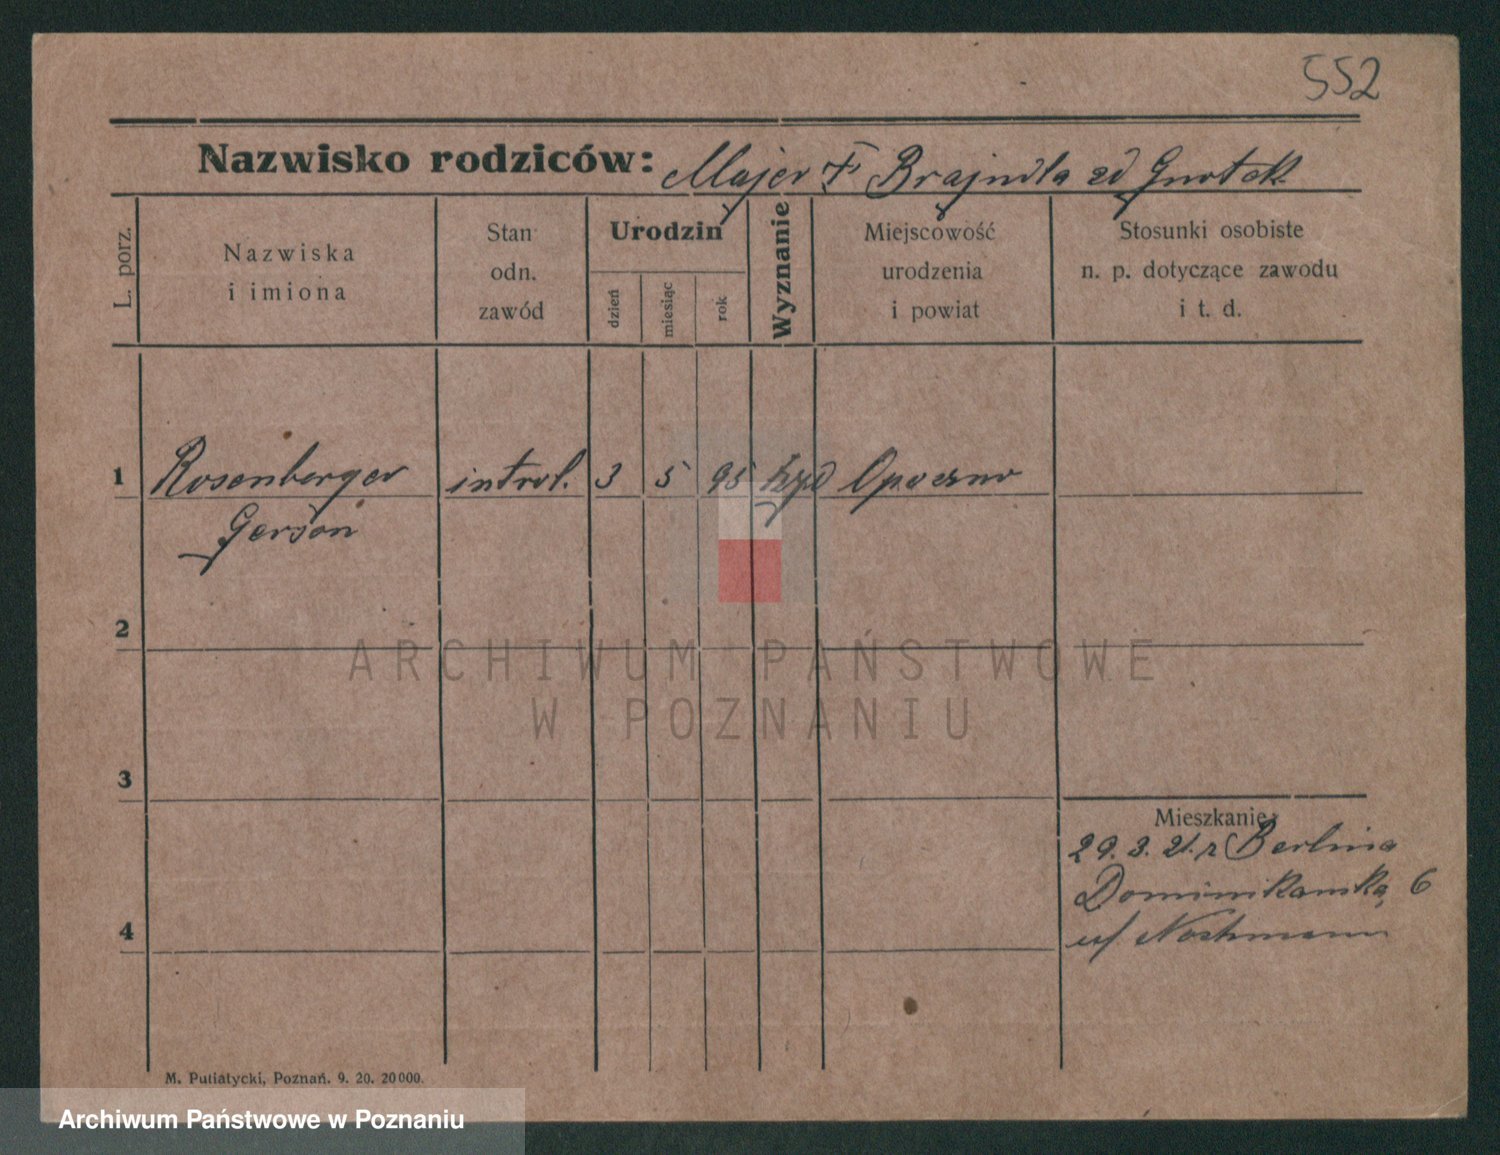 552
Nazwisko rodziców: Majer F Brajndla zd Gnotek
L. porz.
Nazwiska
i imiona
Stan
odn.
zawód
Urodzin
dzień
miesiąc
rok
Wyznanie
Miejscowość
urodzenia
i powiat
Stosunki osobiste
n. p. dotyczące zawodu
i t. d.
1 Rosenberger introl. 3 5 95 żyd Opoczno
Gerson
2
ARCHIWUM PAŃSTWOWE
W POZNANIU
3
Mieszkanie:
29. 3. 21. z Berlina
Dominikańska 6
4
M. Putiatycki, Poznań. 9. 20. 20000.
Archiwum Państwowe w Poznaniu